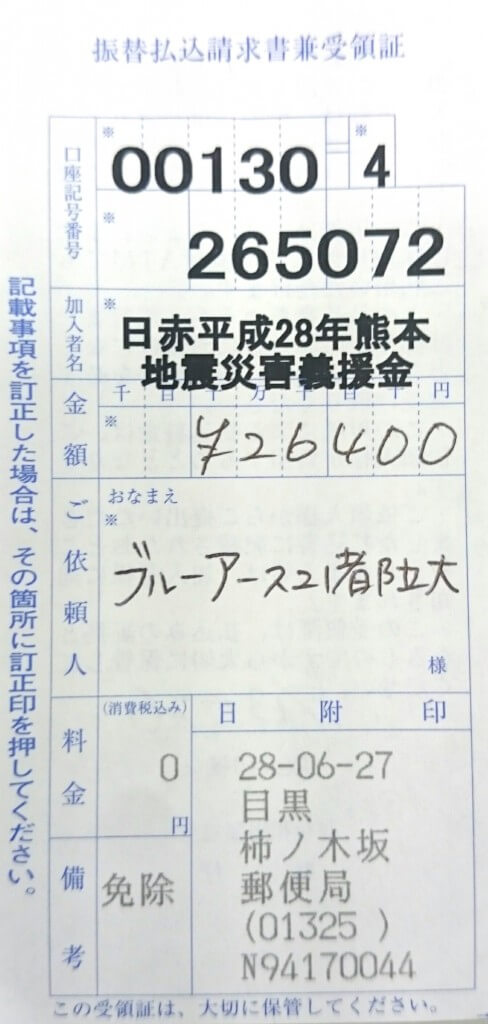 振替払込請求書兼受領証
口座記号番号
※
00130
※
4
※
265072
加入者名
※
日赤平成28年熊本
地震災害義援金
金額
千 百 十 万 千 百 十 円
※
¥26400
ご依頼人
おなまえ
※
ブルーアース21都立大
様
料金
(消費税込み)
0
円
日附印
28-06-27
目黒
柿ノ木坂
郵便局
(01325 )
N94170044
備考
免除
記載事項を訂正した場合は、その箇所に訂正印を押してください。
この受領証は、大切に保管してください。